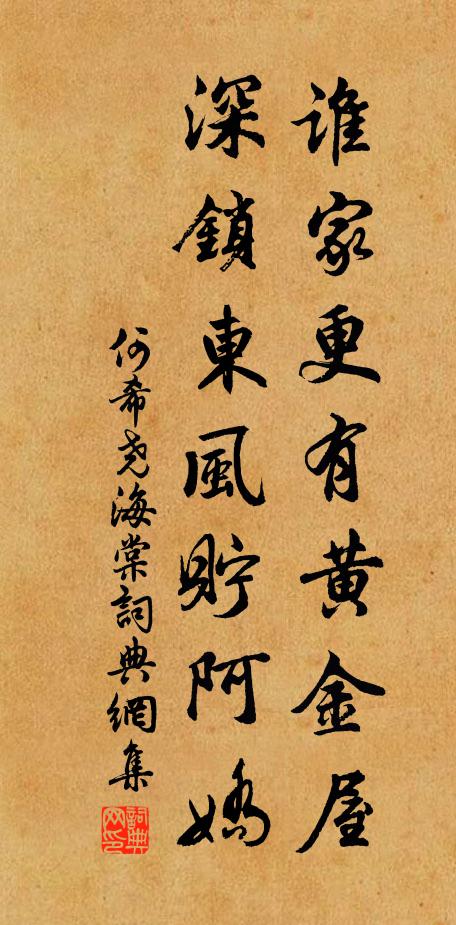 誰家更有黄金屋
深鎖東風貯阿嬌
何希尧海棠詞典網集
詞典网印